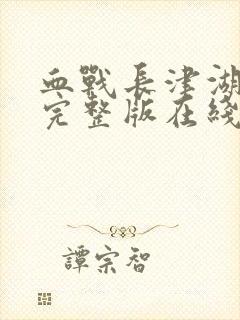 血戰長津湖
完整版在綫
譚宗智